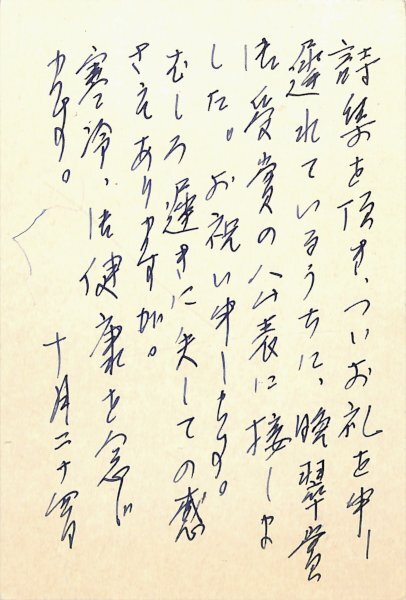 詩集を頂き、ついお礼を申し
遅れているうちに、晩翠賞
御受賞の公表に接しま
した。お祝い申します。
むしろ遅きに失しての感
さえありますが。
寒冷、御健康を念じ
ます。
十月二十四日